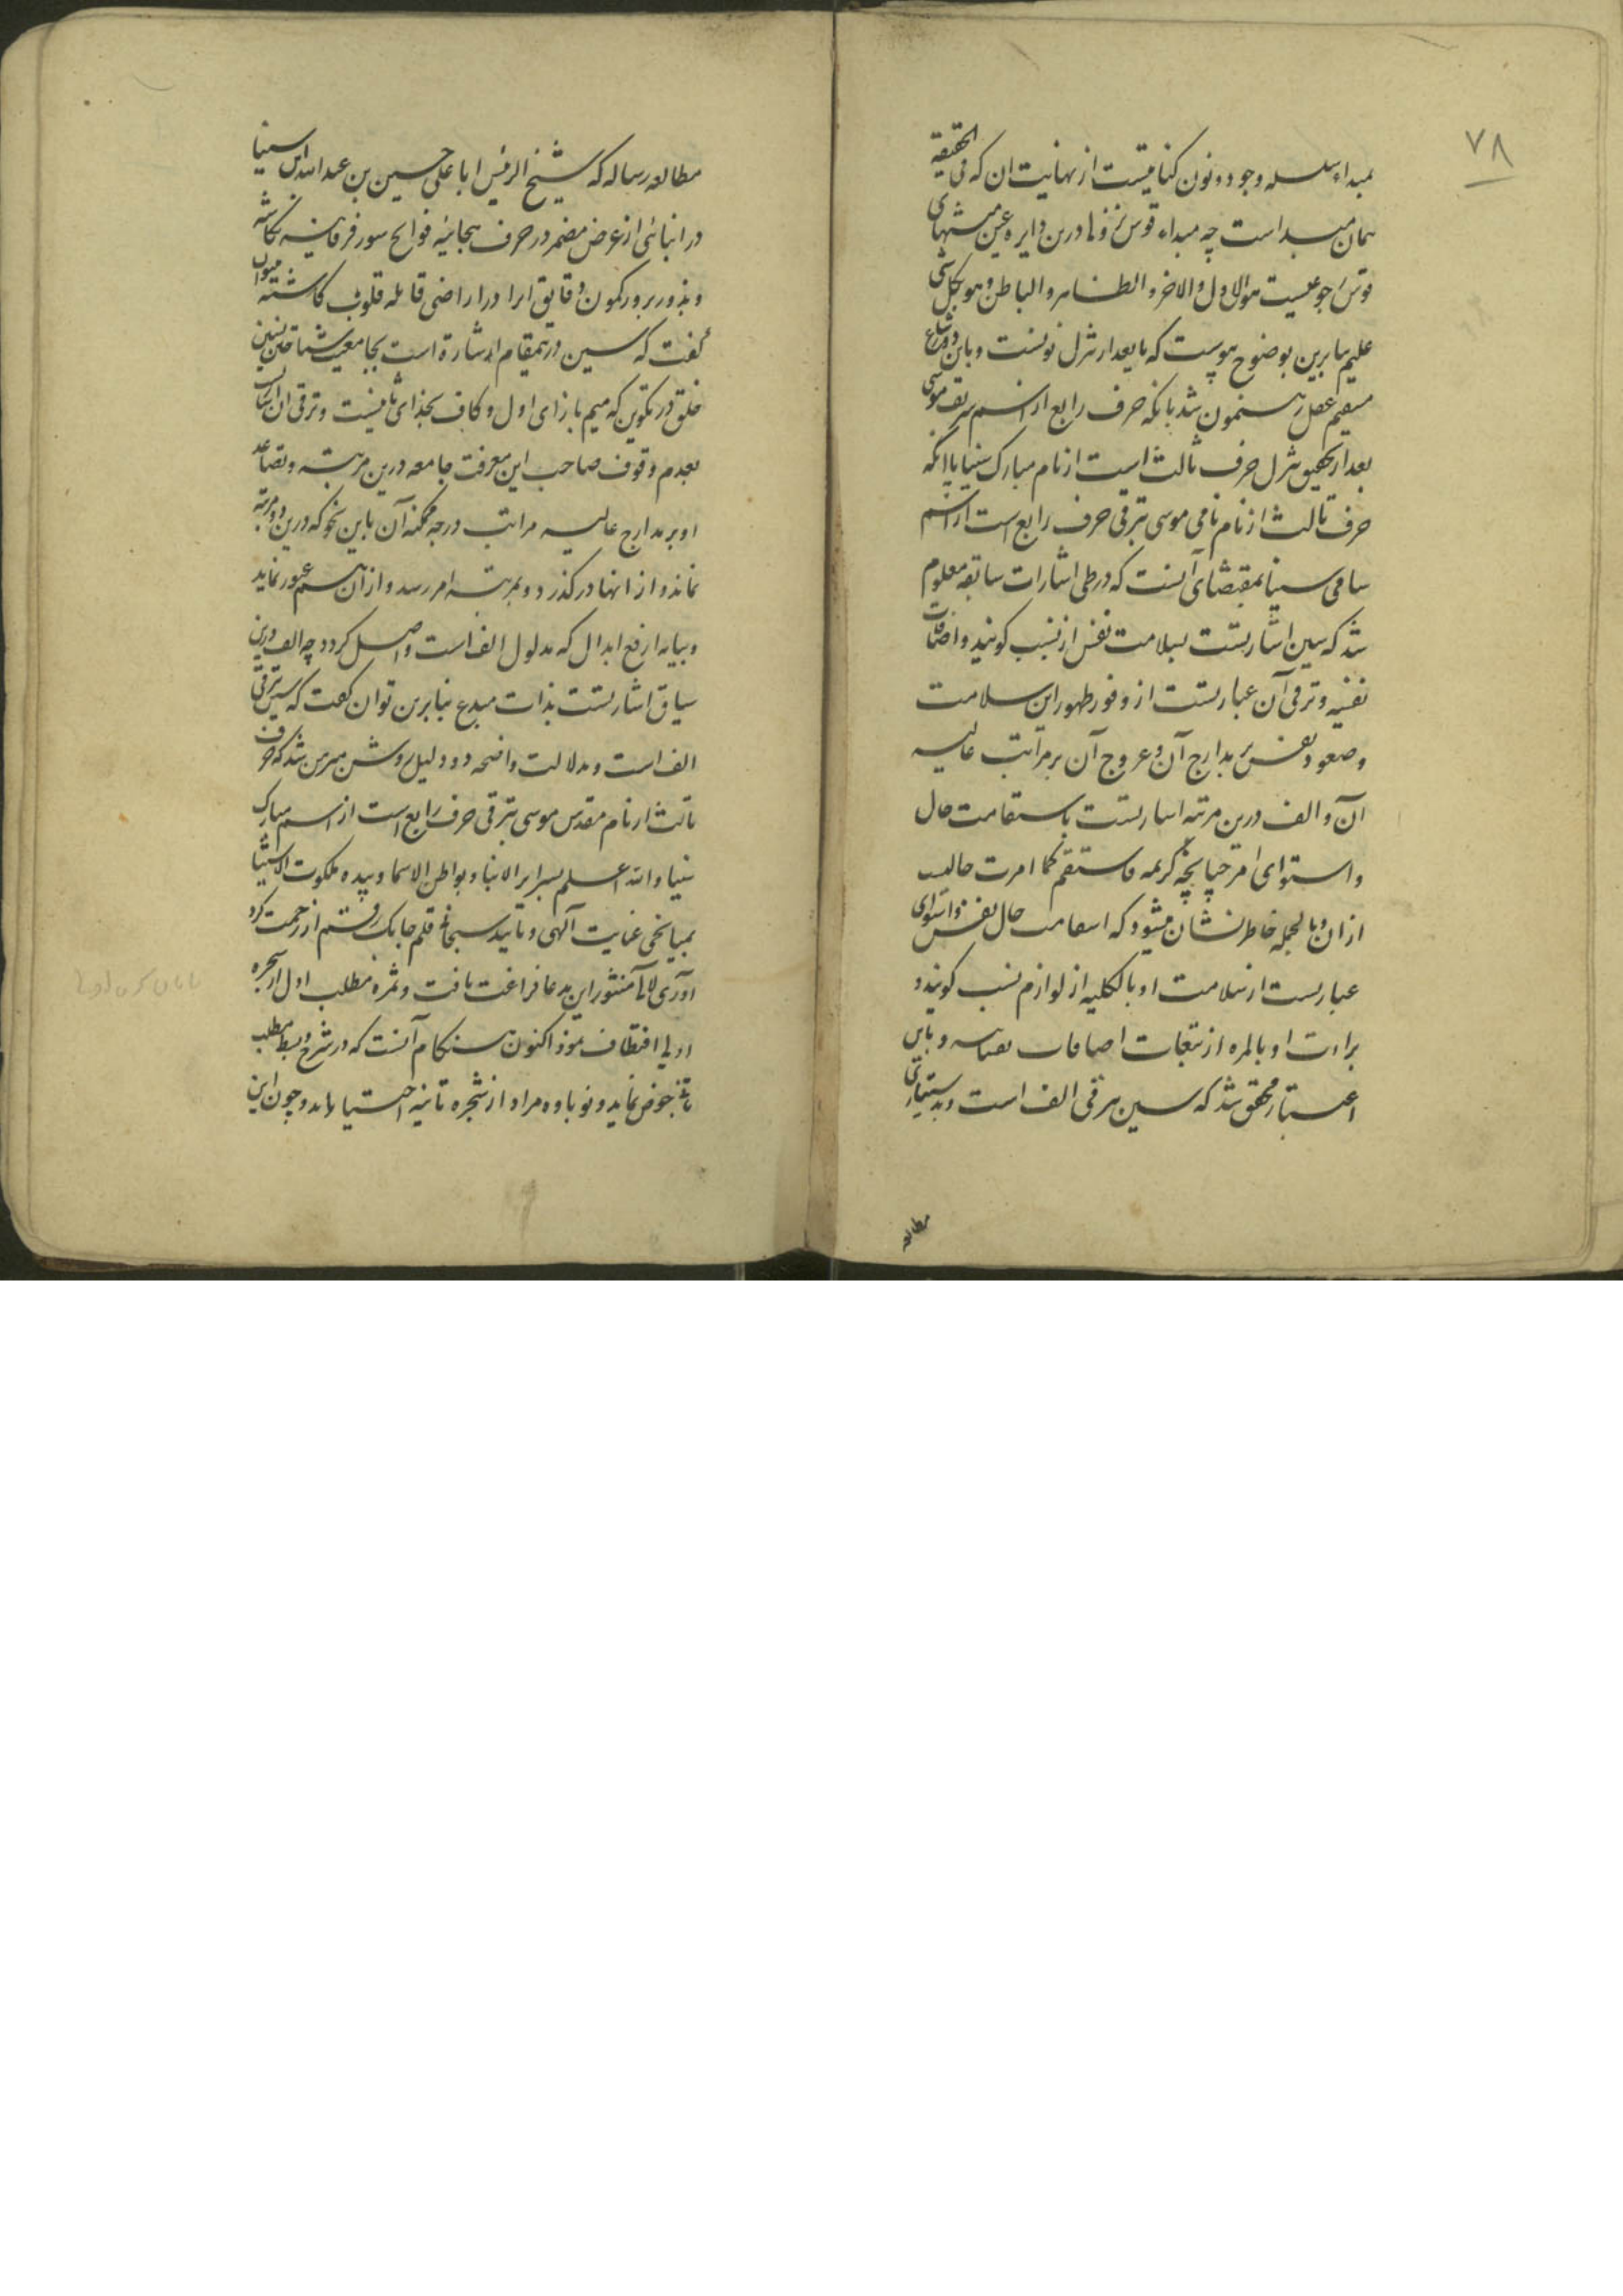 ۷۸
مبداء سلسله وجود و نون کنایتیست از نهایت ان که فی الحقیقة
همان مبداست چه مبداء قوس نزولی درین دایره عین منتهای
قوس رجوعیست هو الاول والاخر والظاهر والباطن وهو بکل شی
علیم بنابرین بوضوح پیوست که یا بعد از تنزل نونست و باین
مستقیم عقل رهنمون شد بانکه حرف رابع از اسم شریف موسی
بعد از تحقیق تنزل حرف ثالث است از نام مبارک سینا با انکه
حرف ثالث از نام نامی موسی بترقی حرف رابع است از اسم
سامی سینا بمقتضای آنست که در طی اشارات سابقه معلوم
شد که سین اشارتست بسلامت نفس از نسب کونیه و اضافات
نفسیه و ترقی آن عبارتست از وفور ظهور این سلامت
و صعود نفس بمدارج آن و عروج آن بر مراتب عالیه
آن و الف درین مرتبه اشارتست باستقامت حال
و استوای امر چنانچه کریمه فاستقم کما امرت حالیست
ازان و بالجمله خاطرنشان میشود که استقامت حال نفس و استوای
عبارتست از سلامت او بالکلیه از لوازم نسب کونیه و
براءت او بالمره از تبعات اضافات نفسانیه و باین
اعتبار محقق شد که سین مترقی الف است و بدستیاری
مطالعه
مطالعه رساله که شیخ الرئیس ابا علی حسین بن عبدالله ابن سینا
در انبائی از غرض مضمر در حرف هجائیه فواتح سور فرقانیه نگاشته
و بذور بر و رکمون دقایق انرا در اراضی قابله قلوب کاشته میتوان
گفت که سین درینمقام اشارة است بجامعیت
خلق در تکوین که میم بازای اول و کاف بحذای ثانیست و ترقی ان
بعدم وقوف صاحب این معرفت جامعه درین مرتبه و تصاعد
او بر مدارج عالیه مراتب درجه ممکنه آن باین نحو که درین دو مرتبه
نماند و از انها درگذرد و بمرتبه امر رسد و از آن هم عبور نماید
و بپایه ارفع ابدال که مدلول الف است واصل کردد چه الف درین
سیاق اشارتست بذات مبدع بنابرین توان کفت که سین ترقی
الف است و بدلالت واضحه دو دلیل روشن مبرهن شد که حرف
ثالث از نام مقدس موسی بترقی حرف رابع است از اسم مبارک
سینا والله اعلم بسرایر الانباء و بواطن الاسماء و بیده ملکوت الاشیاء
بمیانجی عنایت آلهی و تایید سبحانی قلم چابک رقم از زحمت کرد
آوری لالی منثور این مدعا فراغت یافت و ثمره مطلب اول از شجره
اولی اقتطاف نمود اکنون هنگام آنست که در شرح و بسط مطلب
ثانی خوض نماید و نوباوه مراد از شجره ثانیه اجتنا نماید و چون این